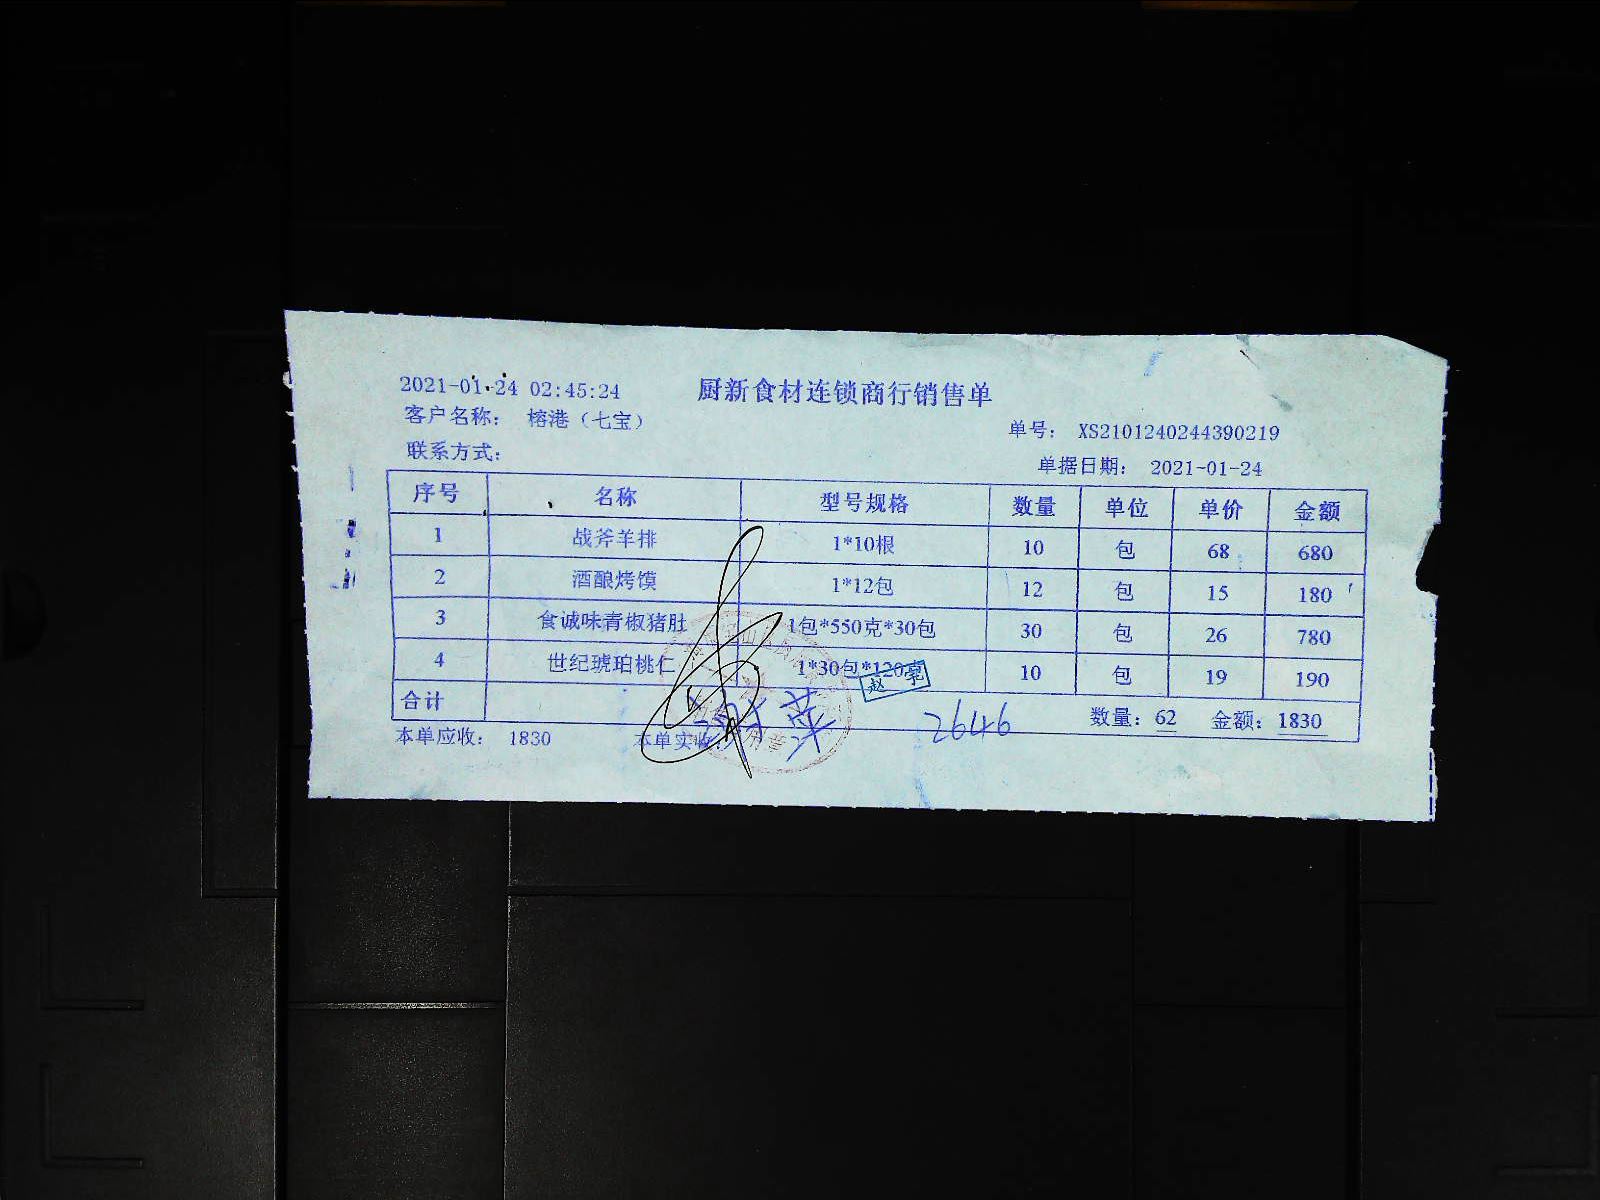 2021-01-24 02:45:24 厨新食材连锁商行销售单
客户名称： 榕港（七宝）
单号： XS2101240244390219
联系方式：
单据日期： 2021-01-24
序号 名称 型号规格 数量 单位 单价 金额
1 战斧羊排 1*10根 10 包 68 680
2 酒酿烤馍 1*12包 12 包 15 180
3 食诚味青椒猪肚 1包*550克*30包 30 包 26 780
4 世纪琥珀桃仁 1*30包*120克 10 包 19 190
合计 数量：62 金额：1830
本单应收： 1830 本单实收：
2646